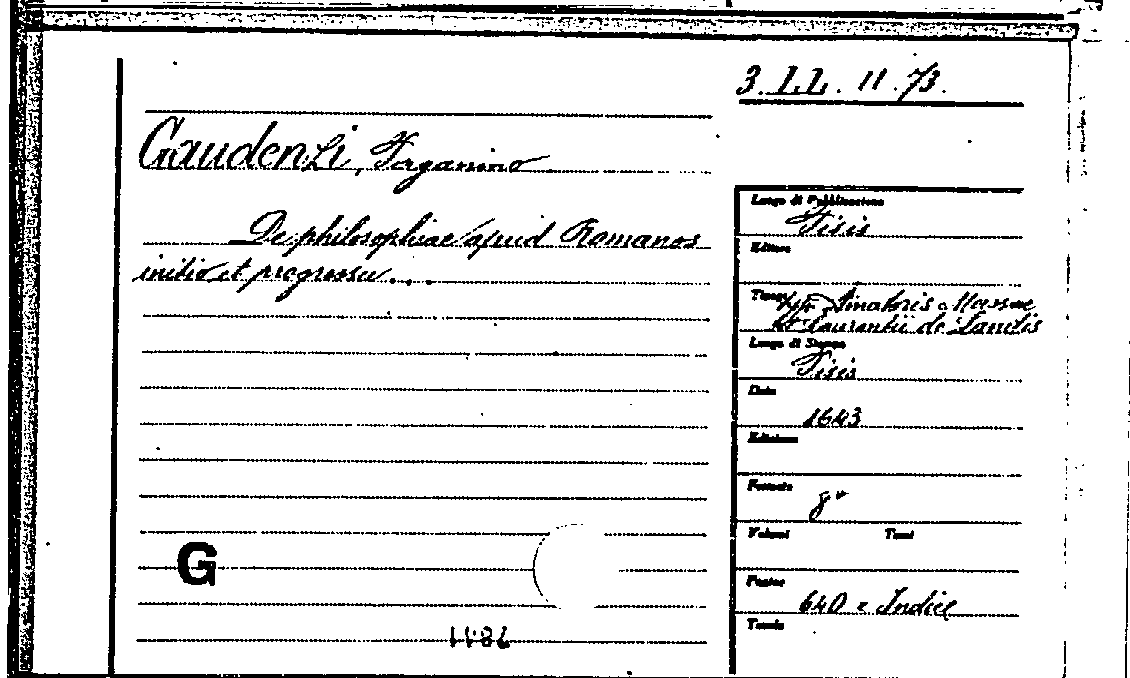 3. LL. 11. 73.
Gaudenzi, Paganino
De philosophiae apud Romanos
initio et progressu...
Luogo di Pubblicazione
Pisis
Editore
Amatoris Massae
et Laurentii de Landis
Luogo di Stampa
Pisis
Data
1643
Edizione
Formato
8°
Volumi Tomi
Pagine
640 e Indice
Tavole
G